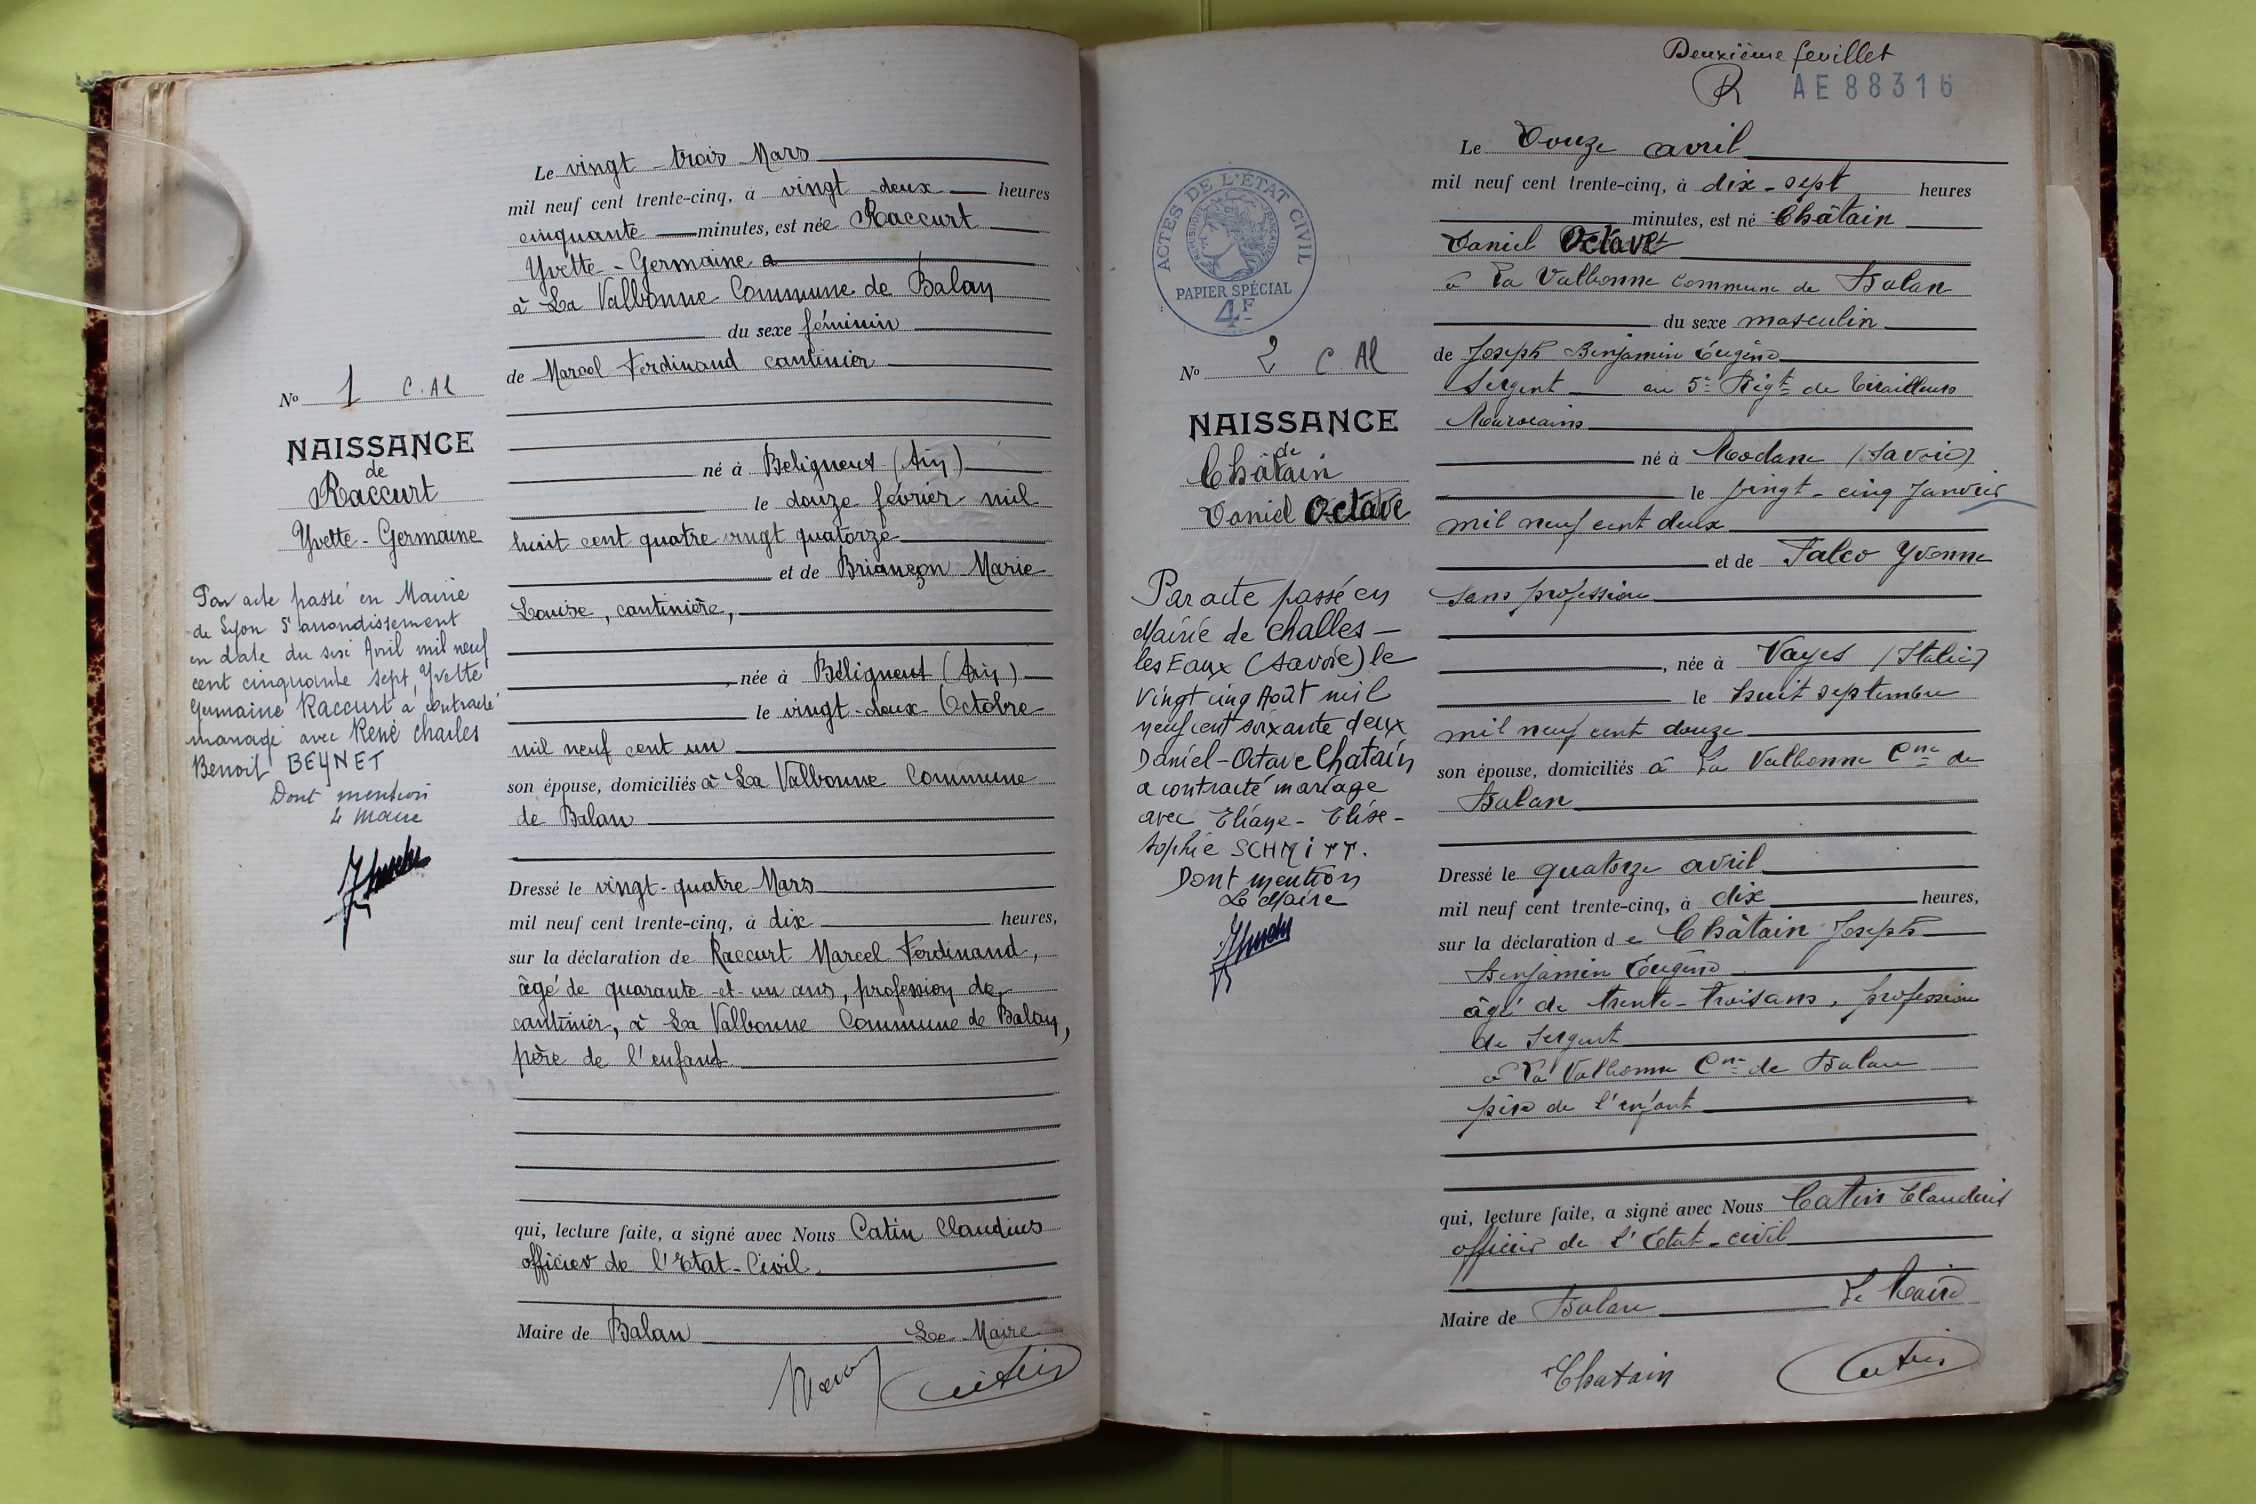 Le vingt-trois Mars
mil neuf cent trente-cinq, à vingt-deux heures
cinquante minutes, est née Raccurt
Yvette-Germaine
à La Valbonne Commune de Balan
du sexe féminin
de Marcel Ferdinand cantinier
né à Béligneux (Ain)
le douze février mil
huit cent quatre vingt quatorze
et de Briançon Marie
Louise, cantinière,
, née à Béligneux (Ain)
le vingt-deux Octobre
mil neuf cent un
son épouse, domiciliés à La Valbonne Commune
de Balan
Dressé le vingt-quatre Mars
mil neuf cent trente-cinq, à dix heures,
sur la déclaration de Raccurt Marcel Ferdinand,
âgé de quarante-et-un ans, profession de
cantinier, à La Valbonne Commune de Balan,
père de l'enfant
qui, lecture faite, a signé avec Nous Catin Claudius
officier de l'Etat-Civil.
Maire de Balan Le Maire
Catin
No 1 C. Al
NAISSANCE
de
Raccurt
Yvette-Germaine
Par acte passé en Mairie
de Lyon 5 arrondissement
en date du six Avril mil neuf
cent cinquante sept, Yvette
Germaine Raccurt a contracté
mariage avec René Charles
Benoit BEYNET
Dont mention
Le Maire
Deuxième feuillet
R AE 88316
ACTES DE L'ÉTAT CIVIL
RÉPUBLIQUE FRANÇAISE
PAPIER SPÉCIAL
4F
No 2 C. Al
NAISSANCE
de
Châtain
Daniel Octave
Par acte passé en
Mairie de Challes-
les Eaux (Savoie) le
Vingt cinq Août mil
neuf cent soixante deux
Daniel-Octave Chatain
a contracté mariage
avec Eliane-Elise-
Sophie SCHMITT.
Dont mention
Le Maire
Le Douze avril
mil neuf cent trente-cinq, à dix-sept heures
minutes, est né Châtain
Daniel Octave
à La Valbonne commune de Balan
du sexe masculin
de Joseph Benjamin Eugène
Sergent au 5e Rigt de Tirailleurs
Marocains
né à Modane (Savoie)
le vingt-cinq Janvier
mil neuf cent deux
et de Falco Yvonne
sans profession
, née à Vayes (Italie)
le huit septembre
mil neuf cent douze
son épouse, domiciliés à La Valbonne Cne de
Balan
Dressé le quatorze avril
mil neuf cent trente-cinq, à dix heures,
sur la déclaration de Châtain Joseph
Benjamin Eugène
âgé de trente-trois ans, profession
de Sergent
à La Valbonne Cne de Balan
père de l'enfant
qui, lecture faite, a signé avec Nous Catin Claudius
officier de l'Etat-civil
Maire de Balan Le Maire
Chatain Catin